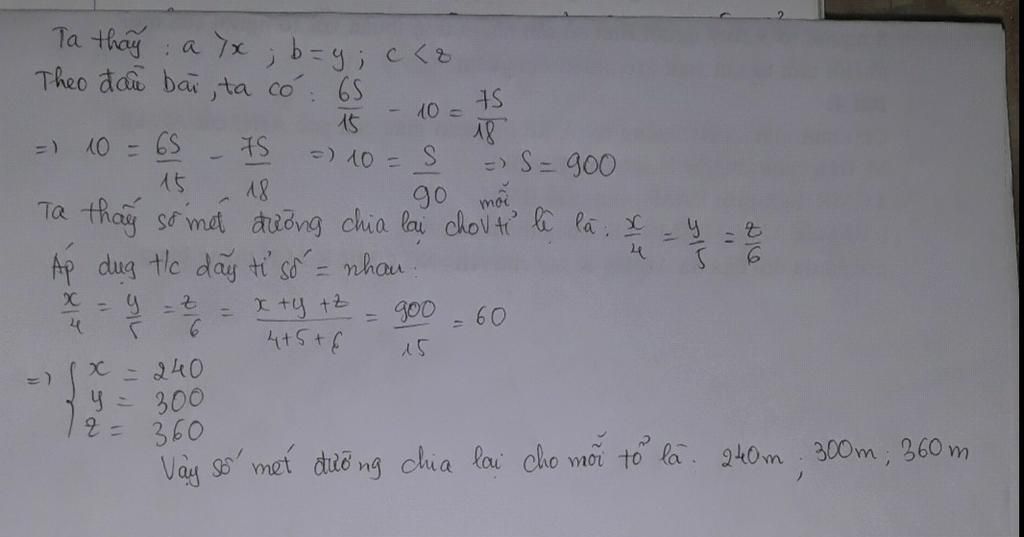 Ta thấy : a > x ; b = y ; c < z
Theo đầu bài, ta có : 6S/15 - 10 = 7S/18
=> 10 = 6S/15 - 7S/18 => 10 = S/90 => S = 900
Ta thấy số mét đường chia lại cho mỗi tỉ lệ là : x/4 = y/5 = z/6
Áp dụg t/c dãy tỉ số = nhau :
x/4 = y/5 = z/6 = x + y + z/4+5+6 = 900/15 = 60
=> { x = 240
y = 300
z = 360
Vậy số mét đường chia lại cho mỗi tổ là : 240m ; 300m ; 360m